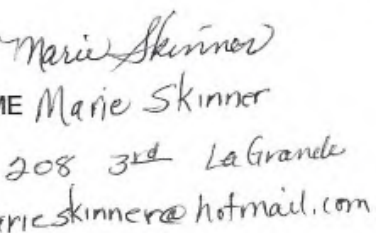 Marie Skinner
ME Marie Skinner
208 3rd La Grande
erieskinner@hotmail.com